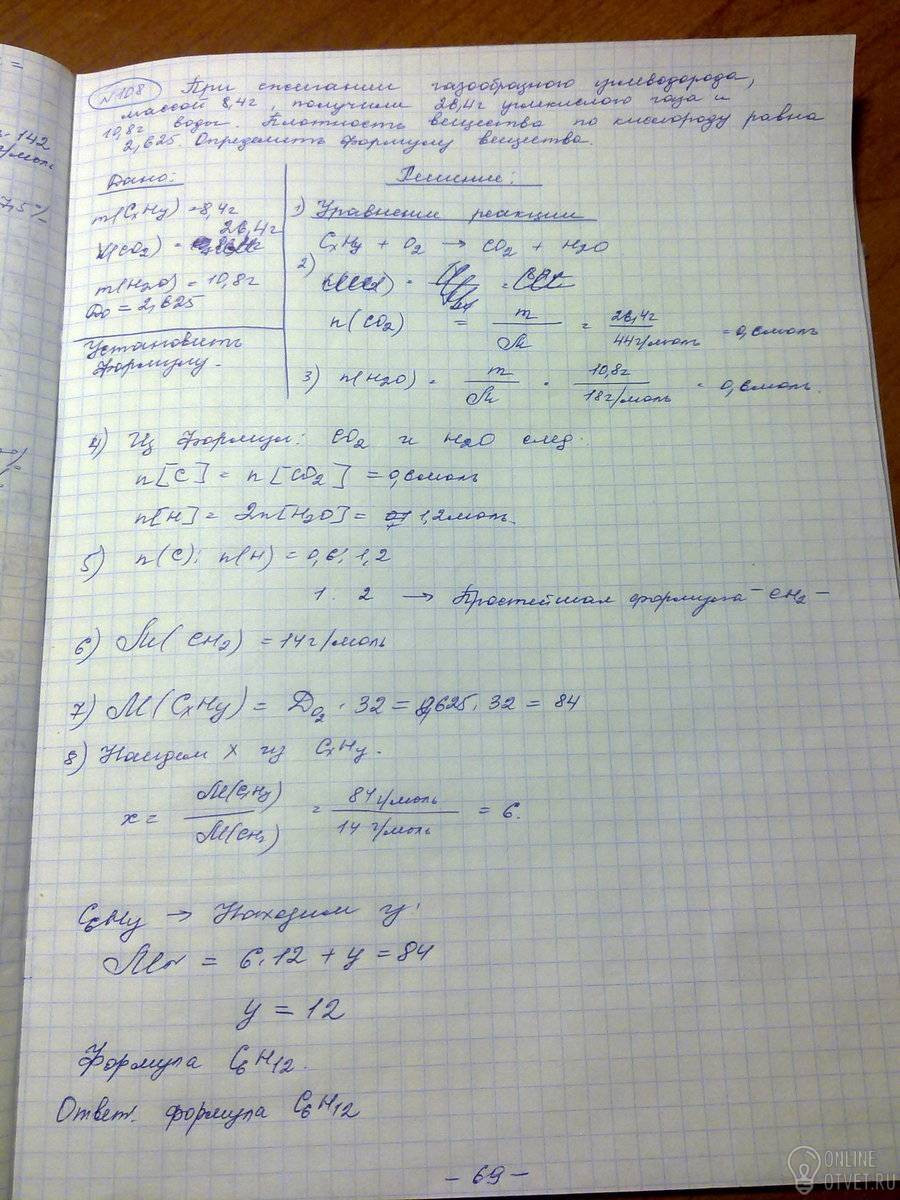 №108 При сжигании газообразного углеводорода,
массой 8,4г, получили 26,4г углекислого газа и
10,8г воды. Плотность вещества по кислороду равна
2,625. Определить формулу вещества.
142
г/моль
7,5%
Дано:
m(CxHy) = 8,4г
26,4г
(CO2) =
m(H2O) = 10,8г
D0 = 2,625
Установить
формулу.
Решение:
1) Уравнение реакции
CxHy + O2 → CO2 + H2O
2)
n(CO2) = m/M = 26,4г/44г/моль = 0,6моль
3) n(H2O) = m/M = 10,8г/18г/моль = 0,6моль.
4) Из формул: CO2 и H2O след.
n[C] = n[CO2] = 0,6моль
n[H] = 2n[H2O] = 1,2моль.
5) n(C): n(H) = 0,6: 1,2
1 : 2 → Простейшая формула - CH2 -
6) M(CH2) = 14г/моль
7) M(CxHy) = DO2 · 32 = 2,625 · 32 = 84
8) Найдем x из CxHy.
x = M(CxHy)/M(CH2) = 84г/моль/14г/моль = 6.
C6Hy → Находим y:
Mr = 6·12 + y = 84
y = 12
Формула C6H12.
Ответ: формула C6H12
- 69 -
ONLINE
OTVET.RU